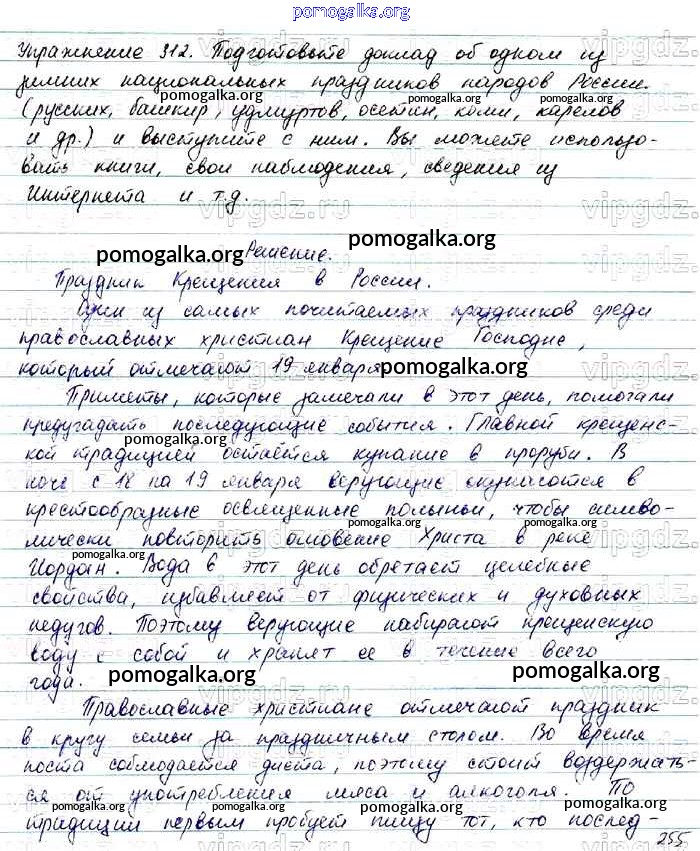 pomogalka.org
Упражнение 312. Подготовьте доклад об одном из
зимних национальных праздников народов России.
pomogalka.org pomogalka.org pomogalka.org
(русских, башкир, удмуртов, осетин, коми, карелов
и др.) и выступите с ним. Вы можете использо-
вать книги, свои наблюдения, сведения из
Интернета и т.д.
vipgdz.ru
pomogalka.org Решение. pomogalka.org
Праздник Крещения в России.
Один из самых почитаемых праздников среди
православных христиан Крещение Господне,
который отмечают 19 января.
pomogalka.org
Приметы, которые замечали в этот день, помогали
предугадать последующие события. Главной крещенс-
pomogalka.org pomogalka.org
кой традицией остаётся купание в проруби. В
ночь с 18 на 19 января верующие окунаются в
крестообразные освященные полыньи, чтобы симво-
pomogalka.org pomogalka.org
лически повторить омовение Христа в реке
pomogalka.org pomogalka.org
Иордан. Вода в этот день обретает целебные
свойства, избавляет от физических и духовных
недугов. Поэтому верующие набирают крещенскую
воду с собой и хранят ее в течение всего
pomogalka.org pomogalka.org
года.
Православные христиане отмечают праздник
в кругу семьи за праздничным столом. Во время
поста соблюдается диета, поэтому стоит воздержать-
ся от употребления мяса и алкоголя. По
pomogalka.org pomogalka.org pomogalka.org
традиции первым пробует пищу тот, кто послед-
255